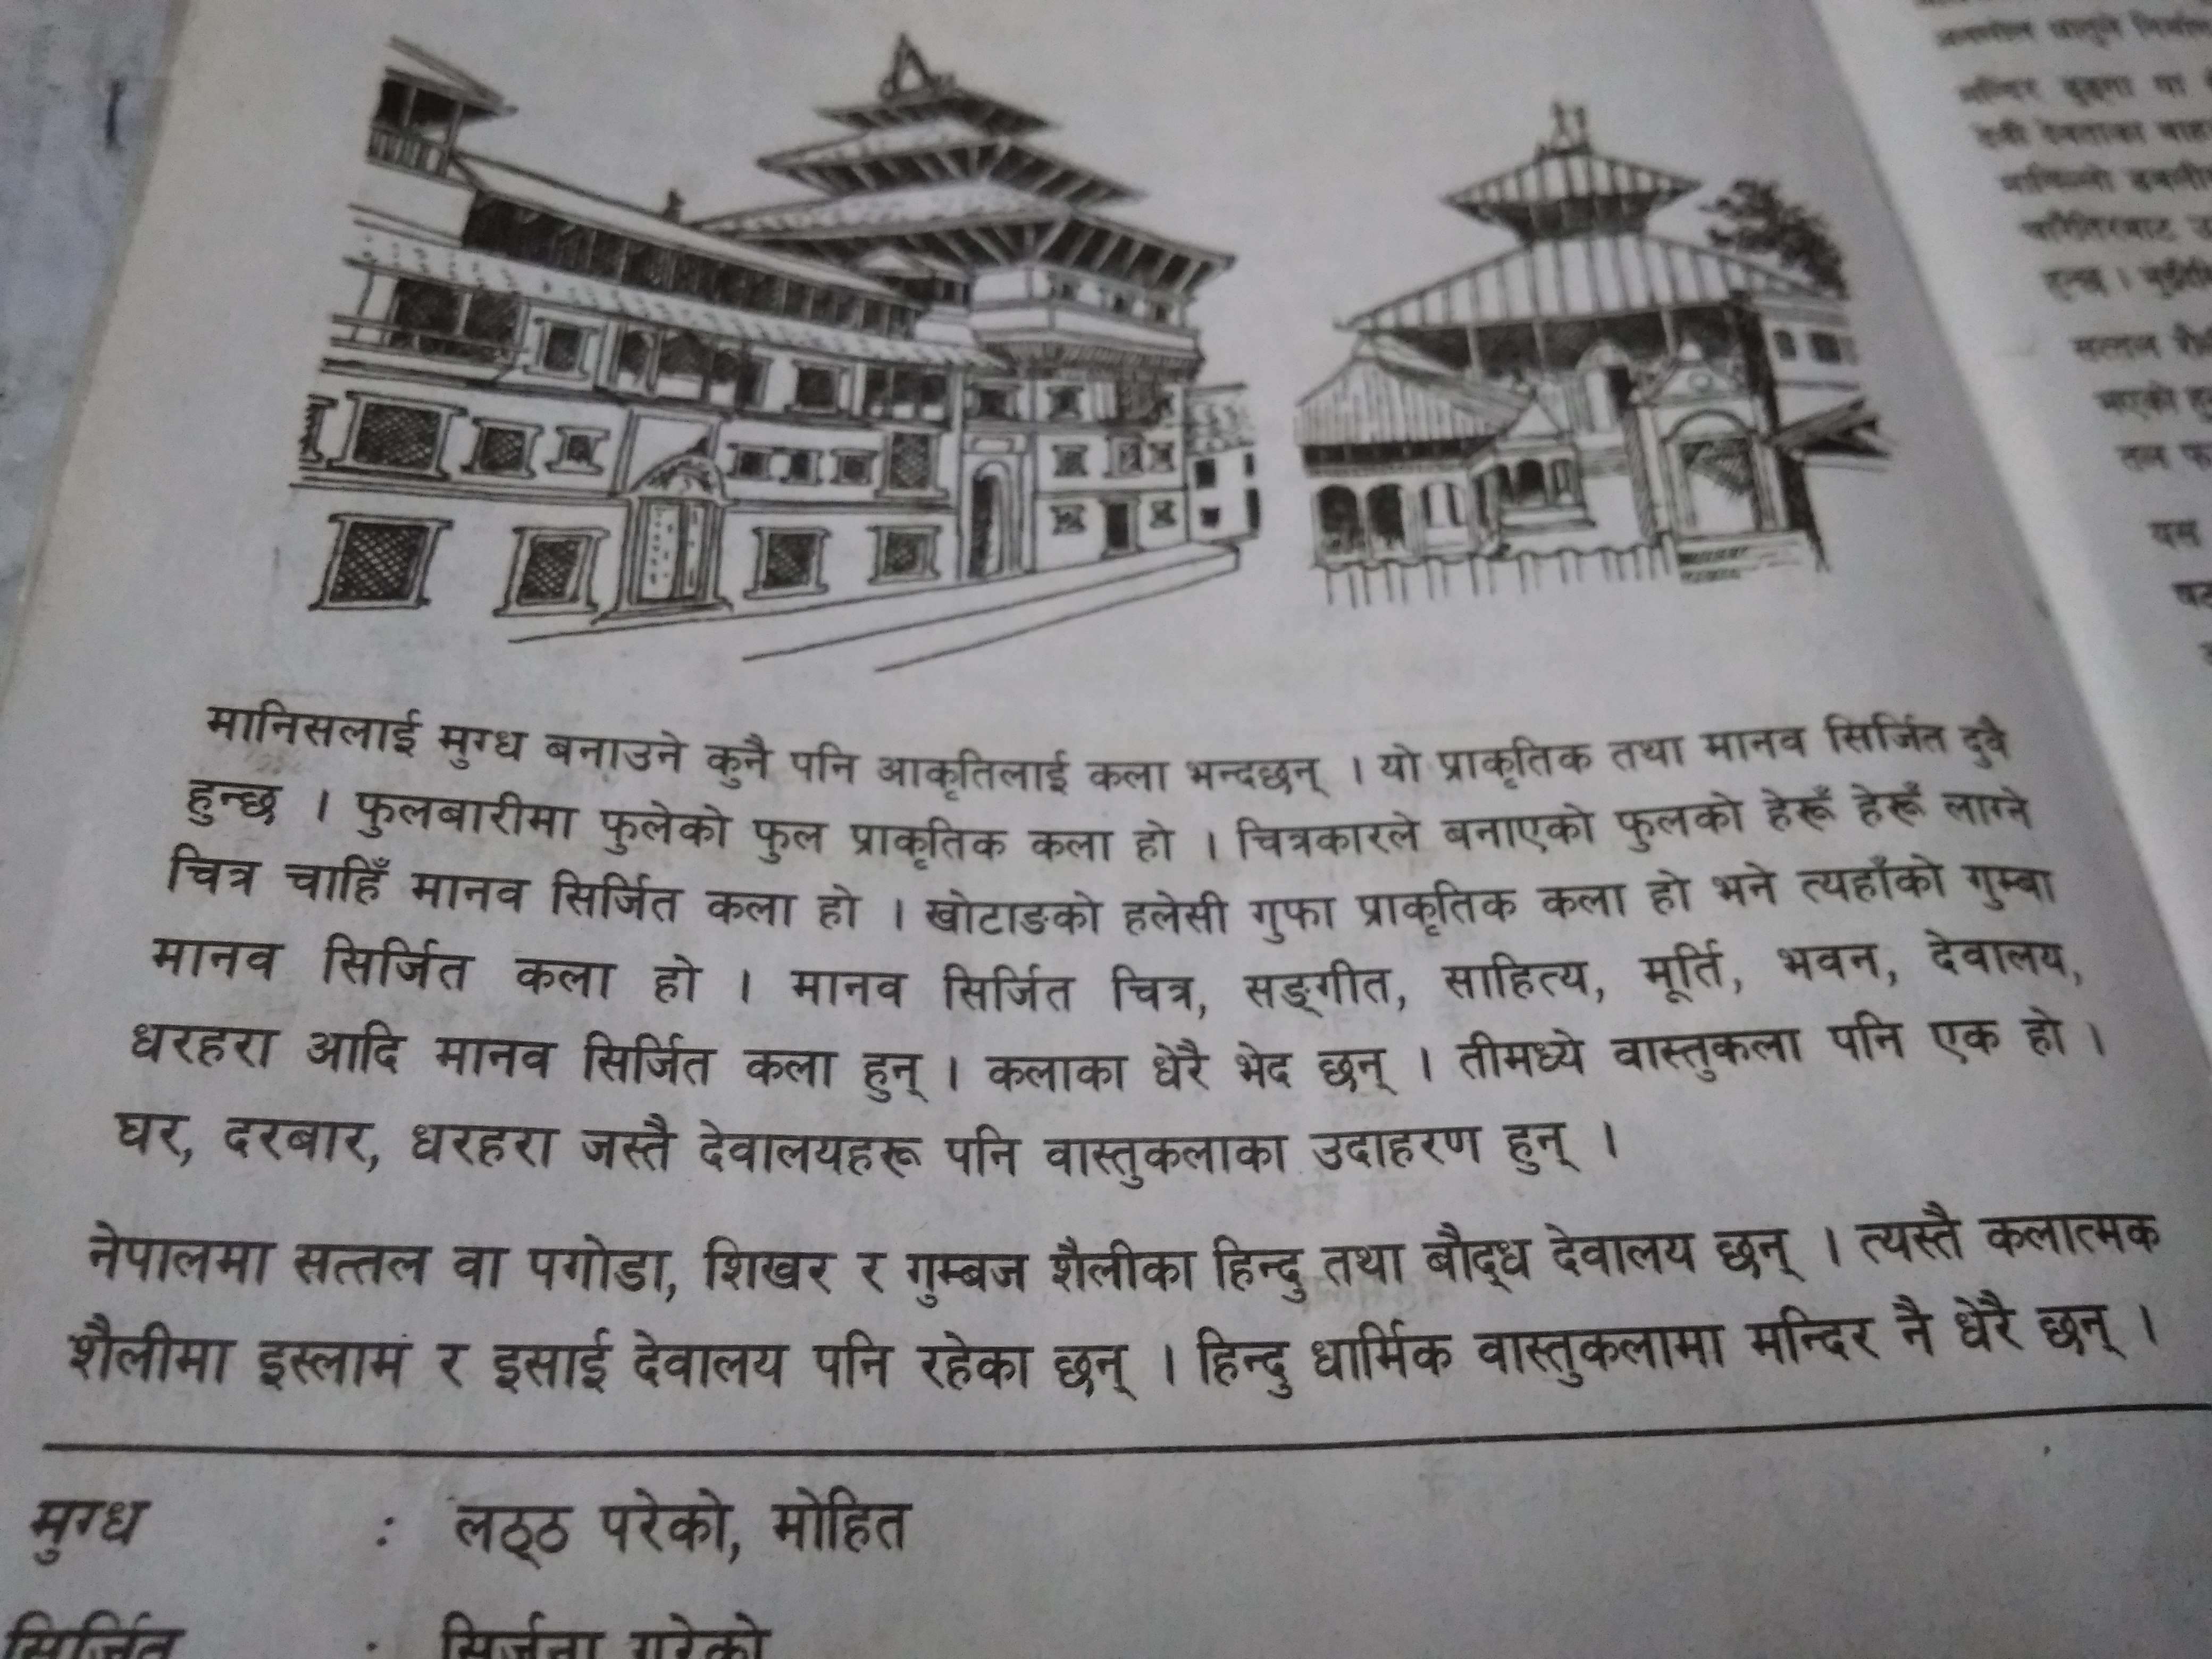 मानिसलाई मुग्ध बनाउने कुनै पनि आकृतिलाई कला भन्दछन् । यो प्राकृतिक तथा मानव सिर्जित दुवै
हुन्छ । फुलबारीमा फुलेको फुल प्राकृतिक कला हो । चित्रकारले बनाएको फुलको हेरूँ हेरूँ लाग्ने
चित्र चाहिँ मानव सिर्जित कला हो । खोटाङको हलेसी गुफा प्राकृतिक कला हो भने त्यहाँको गुम्बा
मानव सिर्जित कला हो । मानव सिर्जित चित्र, सङ्गीत, साहित्य, मूर्ति, भवन, देवालय,
धरहरा आदि मानव सिर्जित कला हुन् । कलाका धेरै भेद छन् । तीमध्ये वास्तुकला पनि एक हो ।
घर, दरबार, धरहरा जस्तै देवालयहरू पनि वास्तुकलाका उदाहरण हुन् ।
नेपालमा सत्तल वा पगोडा, शिखर र गुम्बज शैलीका हिन्दु तथा बौद्ध देवालय छन् । त्यस्तै कलात्मक
शैलीमा इस्लाम र इसाई देवालय पनि रहेका छन् । हिन्दु धार्मिक वास्तुकलामा मन्दिर नै धेरै छन् ।
मुग्ध : लठ्ठ परेको, मोहित
सिर्जित : सिर्जना गरेको
मन्दिर ढुङ्गा वा
यस